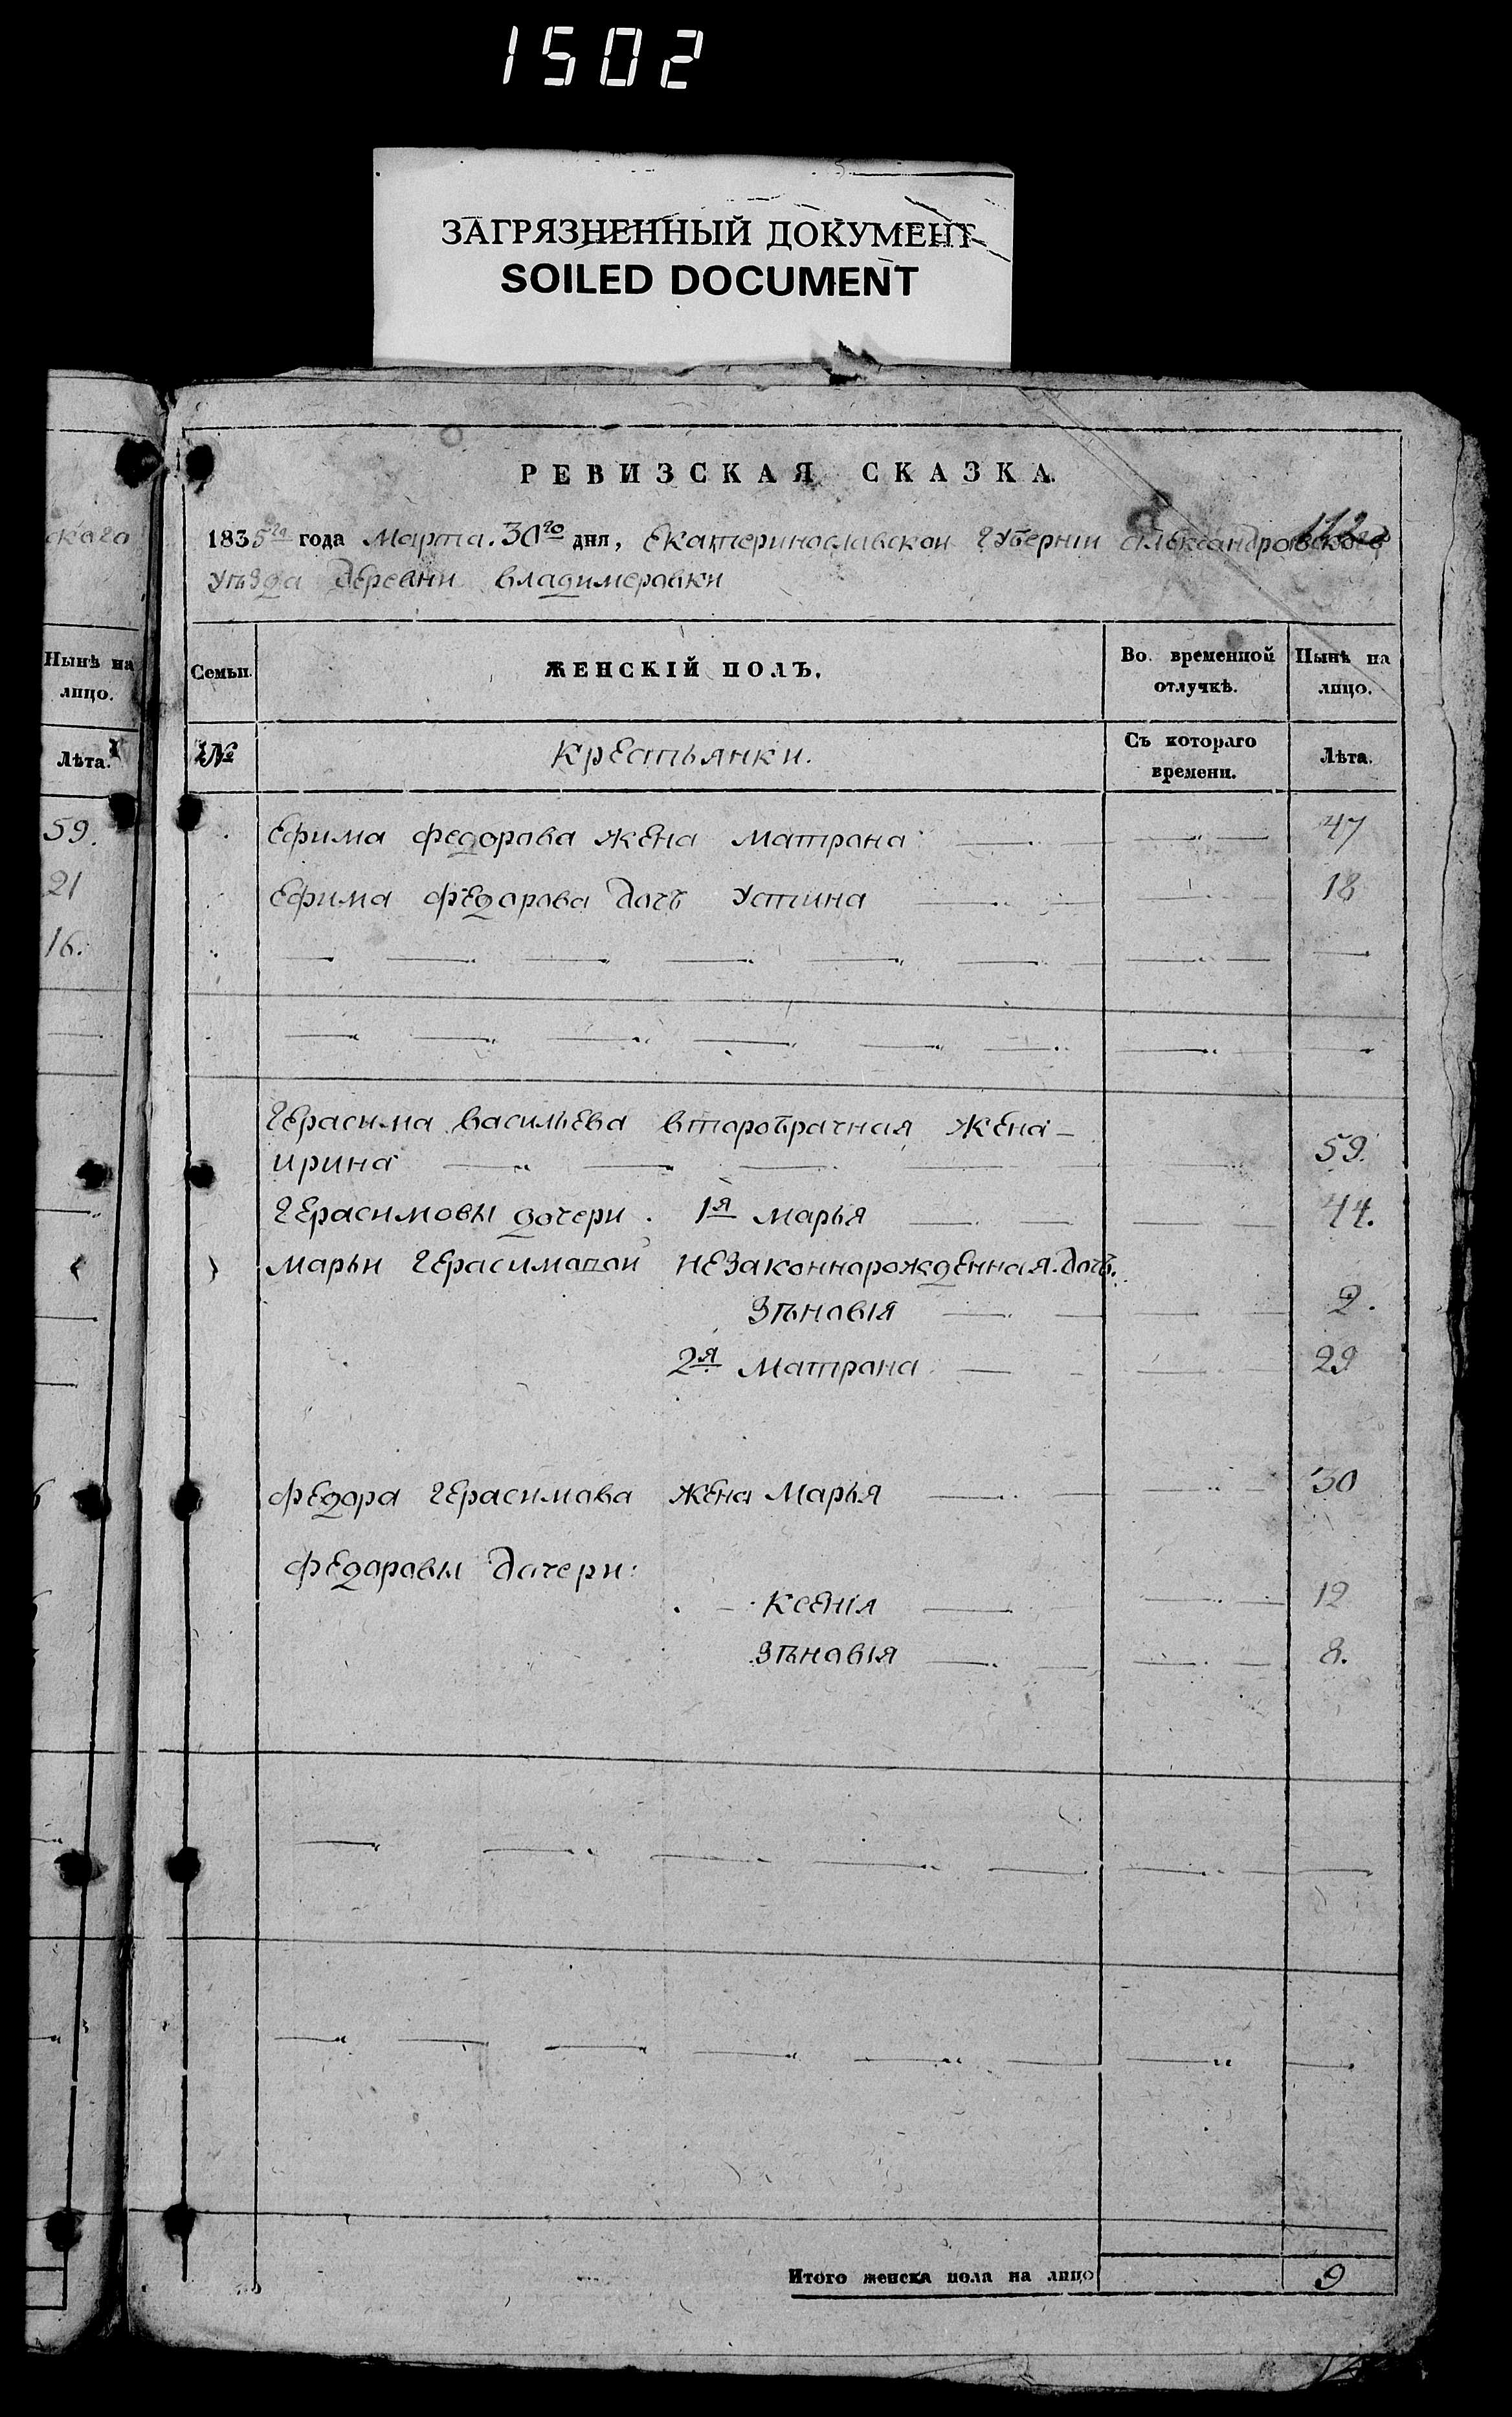 1502
ЗАГРЯЗНЕННЫЙ ДОКУМЕНТ
SOILED DOCUMENT
скаго
Нынѣ на
лицо.
Лѣта.
59.
21
16.
РЕВИЗСКАЯ СКАЗКА.
1835го года Марта 30го дня, Екатеринославской Губерніи Александровскаго
Уѣзда Деревни Владимеровки
Семьи. ЖЕНСКІЙ ПОЛЪ. Во временной отлучкѣ. Нынѣ на лицо.
№ Крестьянки. Съ котораго времени. Лѣта.
Ефима Федорова жена Матрона 47
Ефима Федорова дочь Устина 18
Герасима Васильева второбрачная жена
Ирина 59.
Герасимовы дочери. 1я Марья 44.
Марьи Герасимовой незаконнорожденная дочь.
Зѣновія 2.
2я Матрона 29
Федора Герасимова жена Марья 30
Федоровы дочери:
Ксенія 12
Зѣновія 8.
Итого женска пола на лицо 9